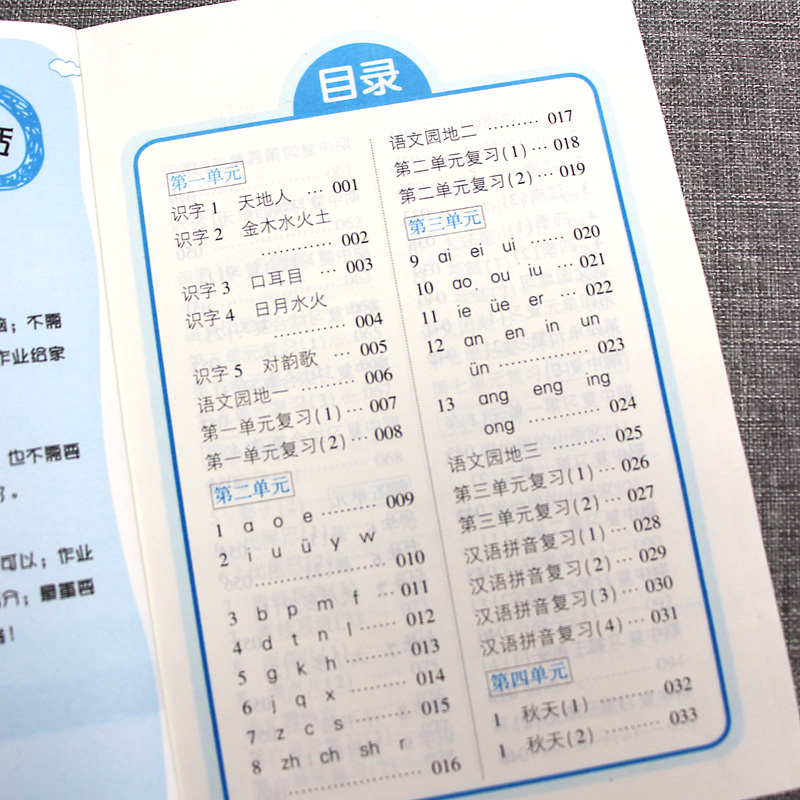 舌
；不需
作业给家
也不需要
可以；作业
；最重要
！
目录
第一单元
识字 1 天地人 … 001
识字 2 金木水火土
………… 002
识字 3 口耳目 … 003
识字 4 日月水火
………… 004
识字 5 对韵歌 … 005
语文园地一 ……… 006
第一单元复习(1) … 007
第一单元复习(2) … 008
第二单元
1 a o e ……… 009
2 i u ü y w
……………… 010
3 b p m f … 011
4 d t n l …… 012
5 g k h ……… 013
6 j q x ……… 014
7 z c s ……… 015
8 zh ch sh r
……………… 016
语文园地二 ……… 017
第二单元复习(1) … 018
第二单元复习(2) … 019
第三单元
9 ai ei ui …… 020
10 ao ou iu … 021
11 ie üe er … 022
12 an en in un
ün ………… 023
13 ang eng ing
ong ……… 024
语文园地三 ……… 025
第三单元复习(1) … 026
第三单元复习(2) … 027
汉语拼音复习(1) … 028
汉语拼音复习(2) … 029
汉语拼音复习(3) … 030
汉语拼音复习(4) … 031
第四单元
1 秋天(1) …… 032
1 秋天(2) …… 033